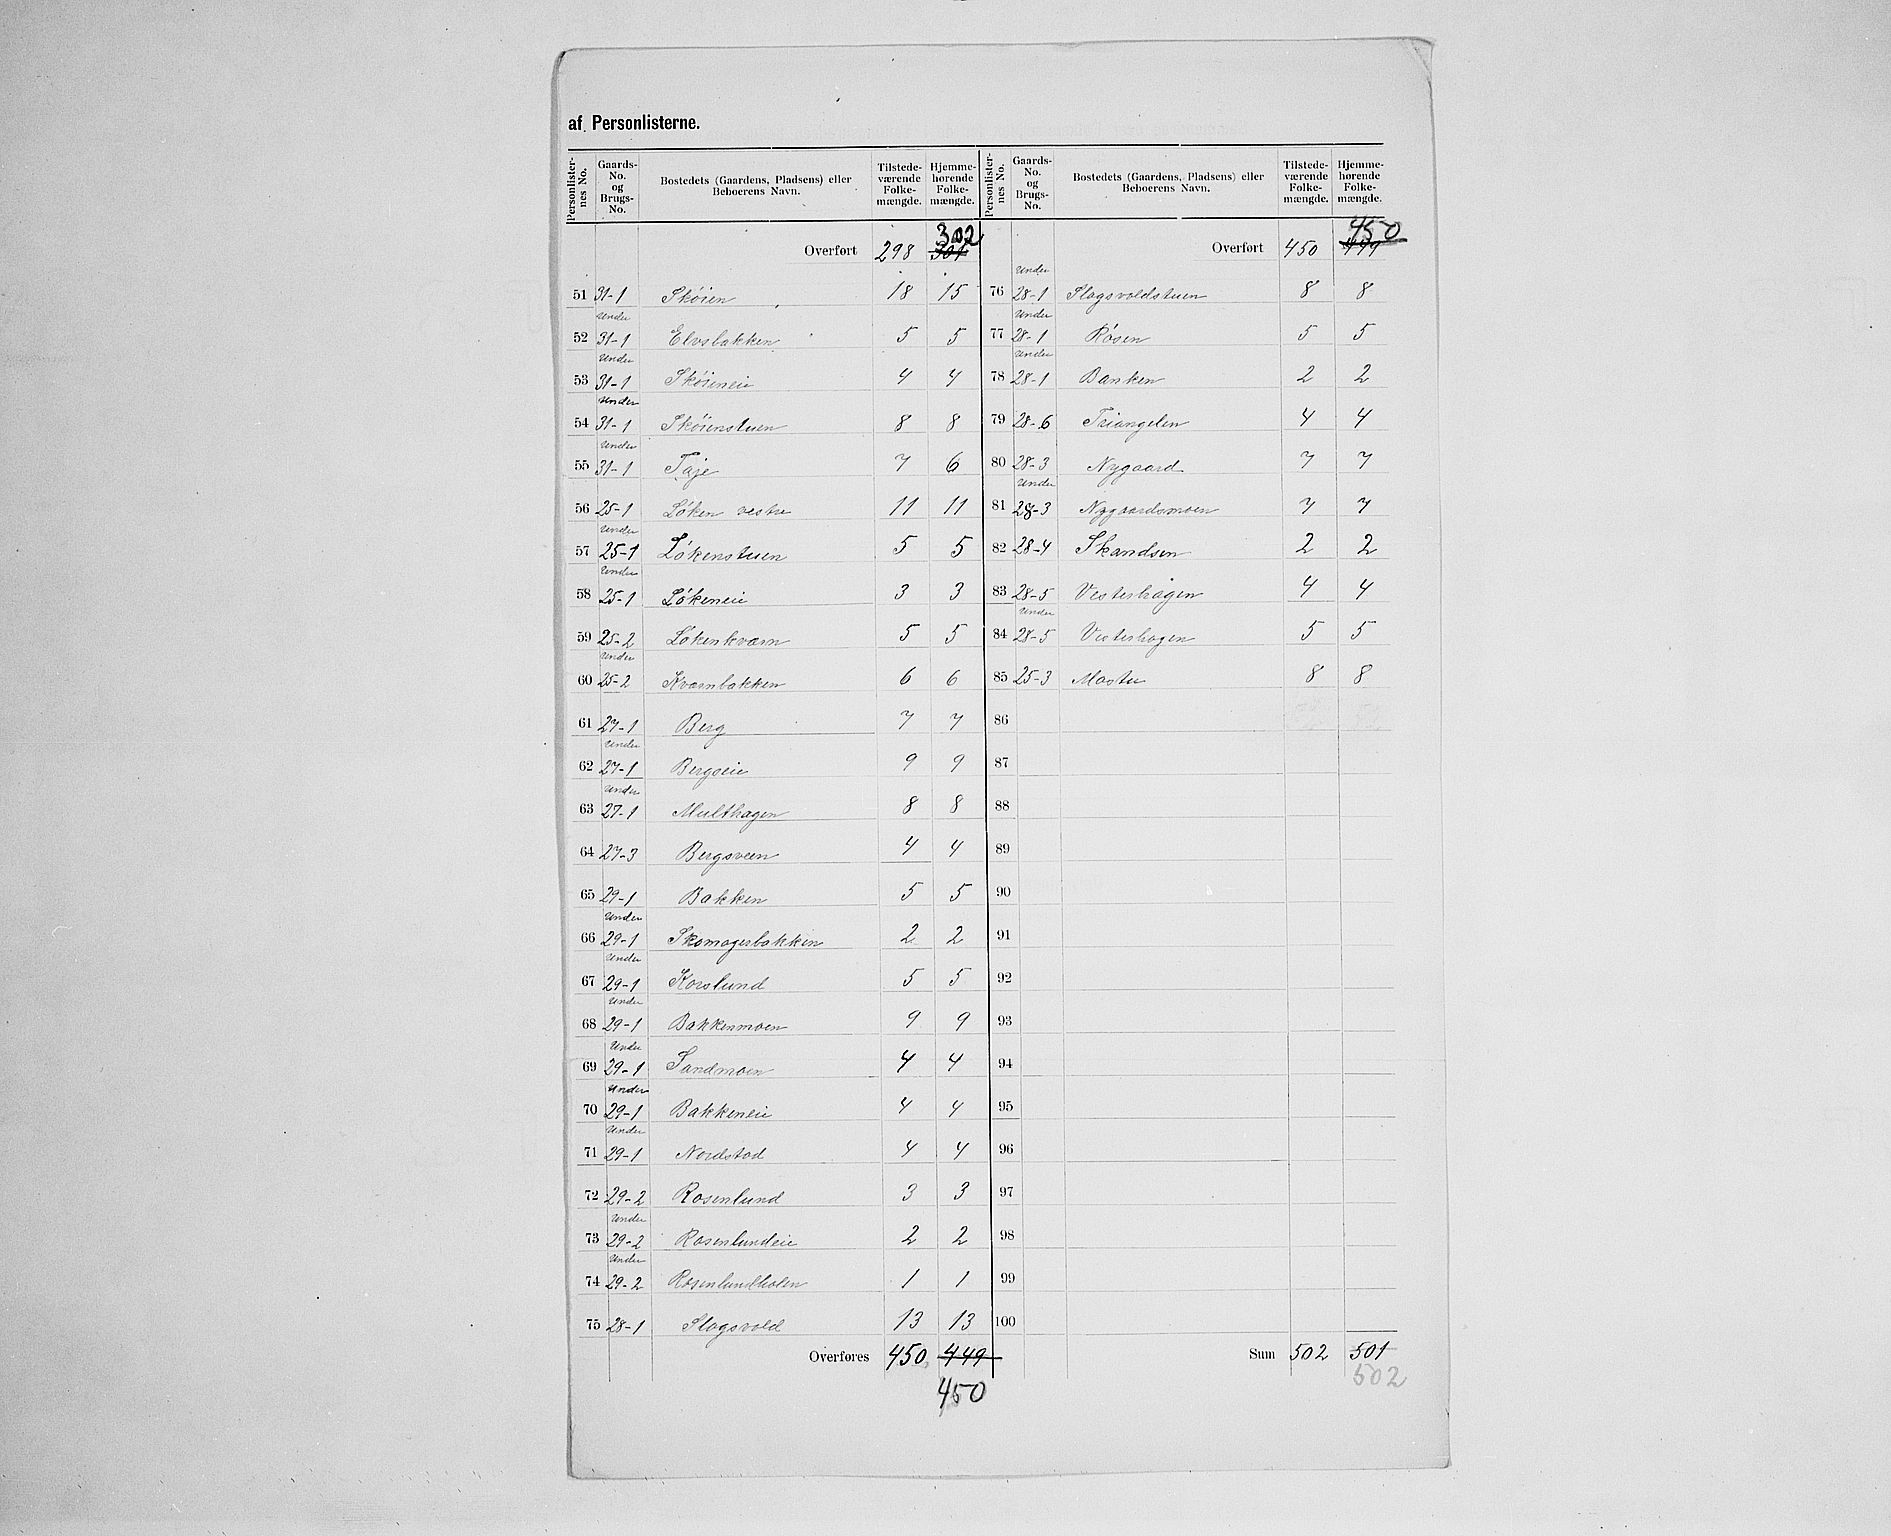 af Personlisterne.
Personlister-nes No. Gaards-No. og Brugs-No. Bostedets (Gaardens, Pladsens) eller Beboerens Navn. Tilstede-værende Folke-mængde. Hjemme-hørende Folke-mængde.
Overført 298 301 302
51 31-1 Sköien 18 15
52 Under 31-1 Elvsbakken 5 5
53 Under 31-1 Sköieneie 4 4
54 Under 31-1 Sköienstuen 8 8
55 Under 31-1 Taje 7 6
56 25-1 Löken vestre 11 11
57 Under 25-1 Lökenstuen 5 5
58 Under 25-1 Lökeneie 3 3
59 25-2 Lökenkværn 5 5
60 Under 25-2 Kværnbakken 6 6
61 27-1 Berg 7 7
62 Under 27-1 Bergseie 9 9
63 Under 27-1 Multhagen 8 8
64 27-3 Bergsveen 4 4
65 29-1 Bakken 5 5
66 Under 29-1 Skomagerbakken 2 2
67 Under 29-1 Korslund 5 5
68 Under 29-1 Bakkenmoen 9 9
69 Under 29-1 Sandmoen 4 4
70 Under 29-1 Bakkeneie 4 4
71 Under 29-1 Nordstad 4 4
72 29-2 Rosenlund 3 3
73 Under 29-2 Rosenlundeie 2 2
74 Under 29-2 Rosenlundholen 1 1
75 28-1 Slagsvold 13 13
Overføres 450 449
450
Personlister-nes No. Gaards-No. og Brugs-No. Bostedets (Gaardens, Pladsens) eller Beboerens Navn. Tilstede-værende Folke-mængde. Hjemme-hørende Folke-mængde.
Overført 450 449 450
76 Under 28-1 Slagsvoldstuen 8 8
77 Under 28-1 Rösen 5 5
78 Under 28-1 Banken 2 2
79 28-6 Triangelen 4 4
80 28-3 Nygaard 7 7
81 Under 28-3 Nygaardsmoen 7 7
82 28-4 Skandsen 2 2
83 28-5 Vesterhagen 4 4
84 Under 28-5 Vesterhagen 5 5
85 25-3 8 8
86
87
88
89
90
91
92
93
94
95
96
97
98
99
100
Sum 502 501
502